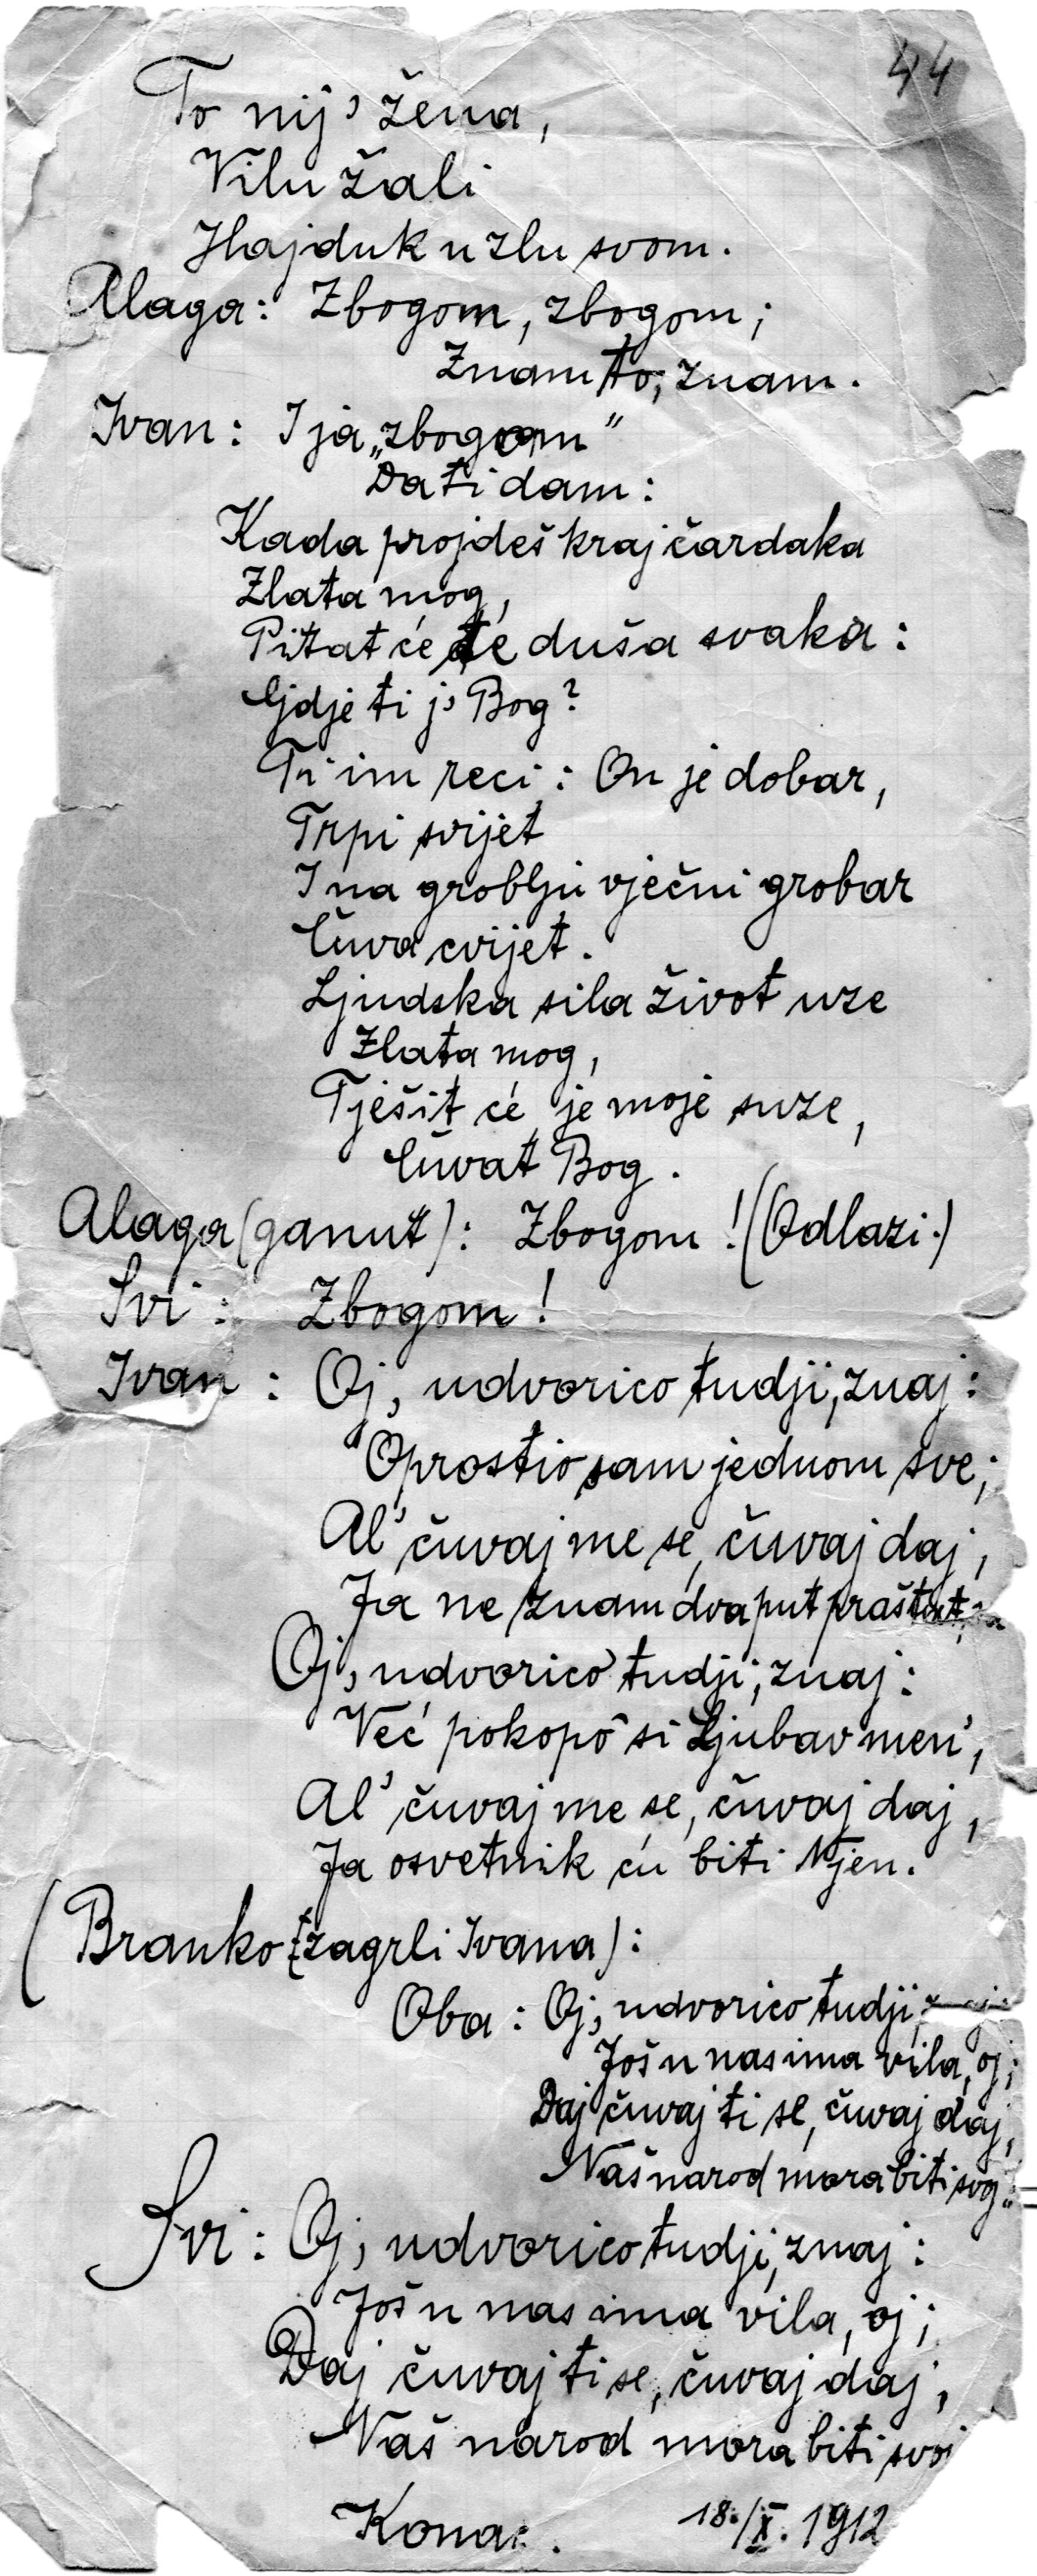 44
To nij' žena,
Vilu žali
Hajduk u zlu svom.
Alaga: Zbogom, zbogom;
Znam to, znam.
Ivan: I ja „zbogom"
Da ti dam:
Kada projdeš kraj čardaka
Zlata mog,
Pitat će te duša svaka:
Gdje ti j' Bog?
Ti im reci: On je dobar,
Trpi svijet
I na groblju vječni grobar
Čuva cvijet.
Ljudska sila život uze
Zlata mog,
Tješit će je moje suze,
Čuvat Bog.
Alaga (ganut): Zbogom! (Odlazi.)
Svi: Zbogom!
Ivan: Oj, udvorico tudji, znaj:
Oprostio sam jednom sve;
Al' čuvaj me se, čuvaj daj,
Ja ne znam dvaput praštat,
Oj, udvorico tudji, znaj:
Već pokopô si ljubav men',
Al' čuvaj me se, čuvaj daj,
Ja osvetnik ću biti njen.
(Branko (zagrli Ivana):
Oba: Oj, udvorico tudji, znaj:
Još u nas ima vila, oj;
Daj čuvaj ti se, čuvaj daj,
Naš narod mora biti svoj.
Svi: Oj, udvorico tudji, znaj:
Još u nas ima vila, oj;
Daj čuvaj ti se, čuvaj daj,
Naš narod mora biti svoj
Konac. 18./X. 1912